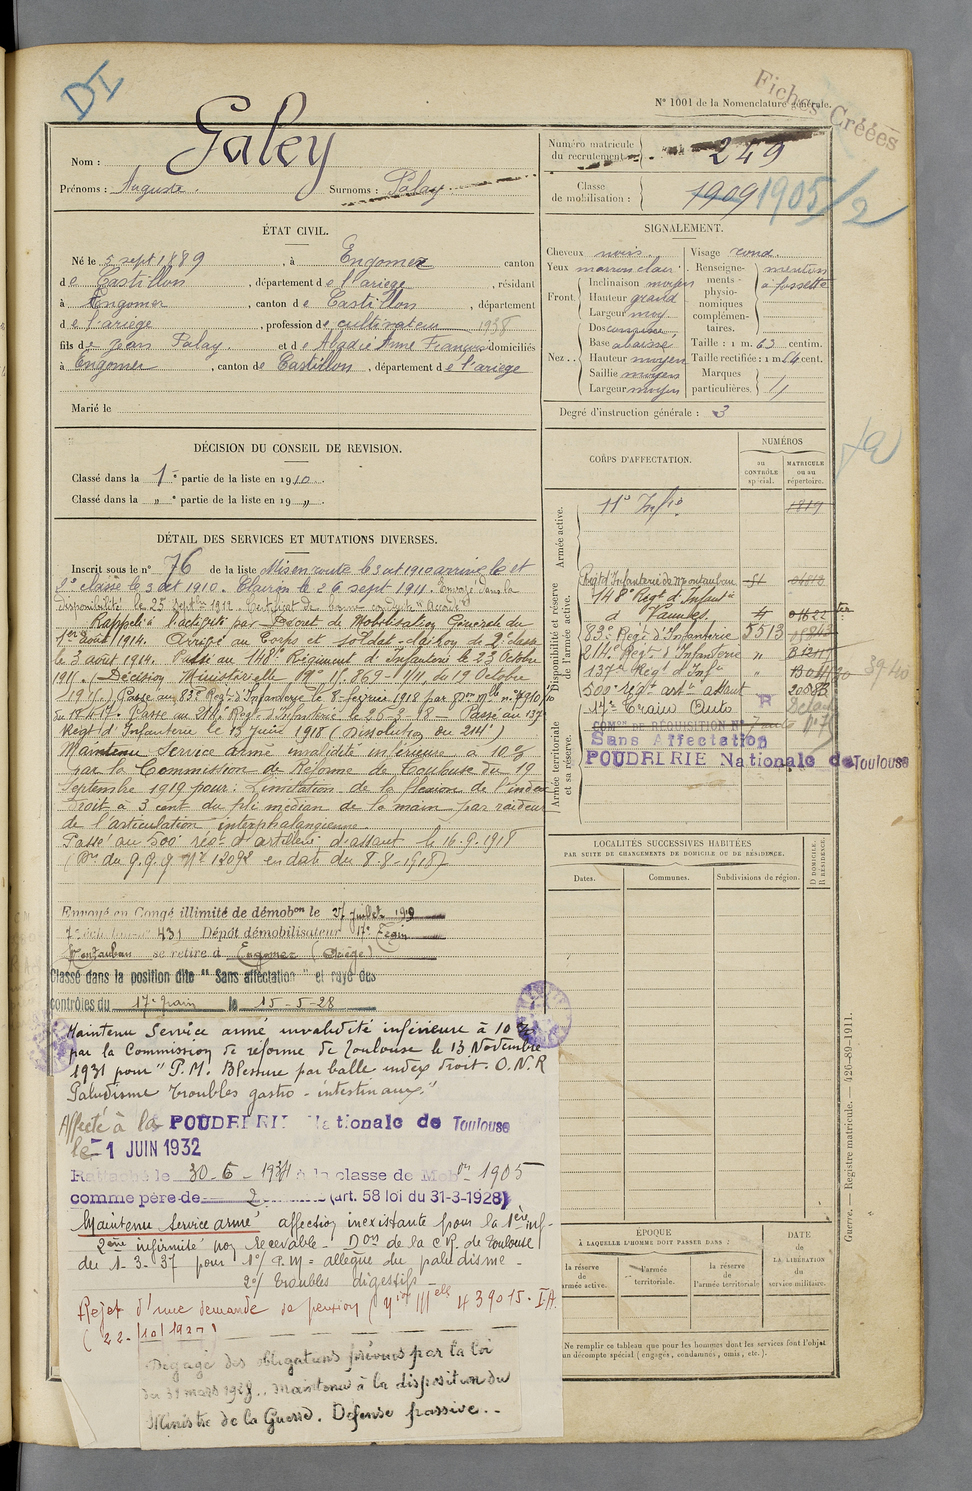 DI
N° 1001 de la Nomenclature générale.
Fiches Créées
Nom : Galey
Prénoms : Auguste. Surnoms : Palay
Numéro matricule du recrutement : 249
Classe de mobilisation : 1909 1905/2
ÉTAT CIVIL.
Né le 5 sept 1889, à Engomer canton
de Castillon, département de l'ariège, résidant
à Engomer, canton de Castillon, département
de l'ariège, profession de cultivateur 1938
fils de Jean Palay. et de Abadie Anne François domiciliés
à Engomer, canton de Castillon, département de l'ariege
Marié le
SIGNALEMENT.
Cheveux noirs.
Yeux marron clair.
Front. Inclinaison moyen
Hauteur grand
Largeur moy.
Nez .. Dos
Base abaissé
Hauteur moyen
Saillie moyen
Largeur moyen
Visage rond.
Renseignements physionomiques complémentaires. menton à fossette
Taille : 1 m. 63 centim.
Taille rectifiée : 1 m. cent.
Marques particulières.
Degré d'instruction générale : 3
DÉCISION DU CONSEIL DE REVISION.
Classé dans la 1re partie de la liste en 1910.
Classé dans la „ e partie de la liste en 19 „.
DÉTAIL DES SERVICES ET MUTATIONS DIVERSES.
Inscrit sous le n° 76 de la liste Mis en route le 3 oct 1910 arrivé le et
2e classe le 3 oct 1910. Clairon le 26 sept 1911. Envoyé dans la
disponibilité le 25 Septbre 1912. Certificat de bonne conduite "Accordé"
Rappelé à l'activité par Décret de Mobilisation Générale du
1er août 1914. Arrivé au Corps et soldat-clairon de 2e classe
le 3 août 1914. Passé au 148e Régiment d'Infanterie le 23 Octobre
1917. (Décision Ministérielle N° 15.869-1/11 du 19 Octobre
1917.) Passé au 83e Régt d'Infanterie le 8 février 1918 par Don Mlle n°
Passé au 214e Régt d'Infanterie le 26-3-18 — Passé au 137e
Régt d'Infanterie le 13 Juin 1918 (Dissolution du 214e)
Maintenu Service armé invalidité inférieure à 10 %
par la Commission de Réforme de Toulouse du 19
Septembre 1919 pour : Limitation de la flexion de l'index
Droit à 3 cent du pli médian de la main par raideur
de l'articulation interphalangienne.
Passé au 500e rég. d'artillerie d'assaut le 16.9.1918
(Don du G.Q.G N° 12092 en date du 8-8-1918)
Envoyé en Congé illimité de démobon le 25 Juillet 1919
431 Dépôt démobilisateur 17e Train
Montauban se retire à Engomer (Ariège)
Classé dans la position dite "Sans affectation" et rayé des
contrôles du 17e train le 15-5-28
Maintenu Service armé invalidité inférieure à 10 %
par la Commission de réforme de Toulouse le 13 Novembre
1931 pour "P.M. Blessure par balle index droit. O.N.R
Paludisme troubles gastro-intestinaux."
Affecté à la POUDRERIE Nationale de Toulouse
le -1 JUIN 1932
Rattaché le 30-6-1934 à la classe de Mobon 1905
comme père de 2 (art. 58 loi du 31-3-1928)
Maintenu Service armé affection inexistante pour la 1ère inf-
2ème infirmité non recevable - Don de la C.R. de Toulouse
du 1-3-37 pour 1°/ P.M = allègue du paludisme -
2°/ troubles digestifs -
Rejet d'une demande de pension (Don Mlle 439015. I.A.
(22-10-1937)
Dégagé des obligations prévues par la loi
du 31 mars 1928.. maintenu à la disposition du
Ministre de la Guerre. Défense passive..
CORPS D'AFFECTATION.
NUMÉROS
au CONTRÔLE spécial.
MATRICULE ou au répertoire.
Armée active.
11e Infie 1819
Disponibilité et réserve de l'armée active.
Régt d'Infanterie de Montauban
148e Régt d'Infantie
d Vannes.
83e Régt d'Infanterie 5513
214e Régt d'Infanterie „
137e Régt d'Infie „
500e régt artie assaut
17e Train Auto R
Armée territoriale et sa réserve.
COMon DE RÉQUISITION N°
Sans Affectation
POUDRERIE Nationale de Toulouse
LOCALITÉS SUCCESSIVES HABITÉES
PAR SUITE DE CHANGEMENTS DE DOMICILE OU DE RÉSIDENCE.
Dates. Communes. Subdivisions de région. D DOMICILE. R RÉSIDENCE.
ÉPOQUE
À LAQUELLE L'HOMME DOIT PASSER DANS :
la réserve de l'armée active.
l'armée territoriale.
la réserve de l'armée territoriale
DATE de LA LIBÉRATION du service militaire.
Ne remplir ce tableau que pour les hommes dont les services font l'objet
d'un décompte spécial (engagés, condamnés, omis, etc.).
Guerre. — Registre matricule. — 426-89-1911.